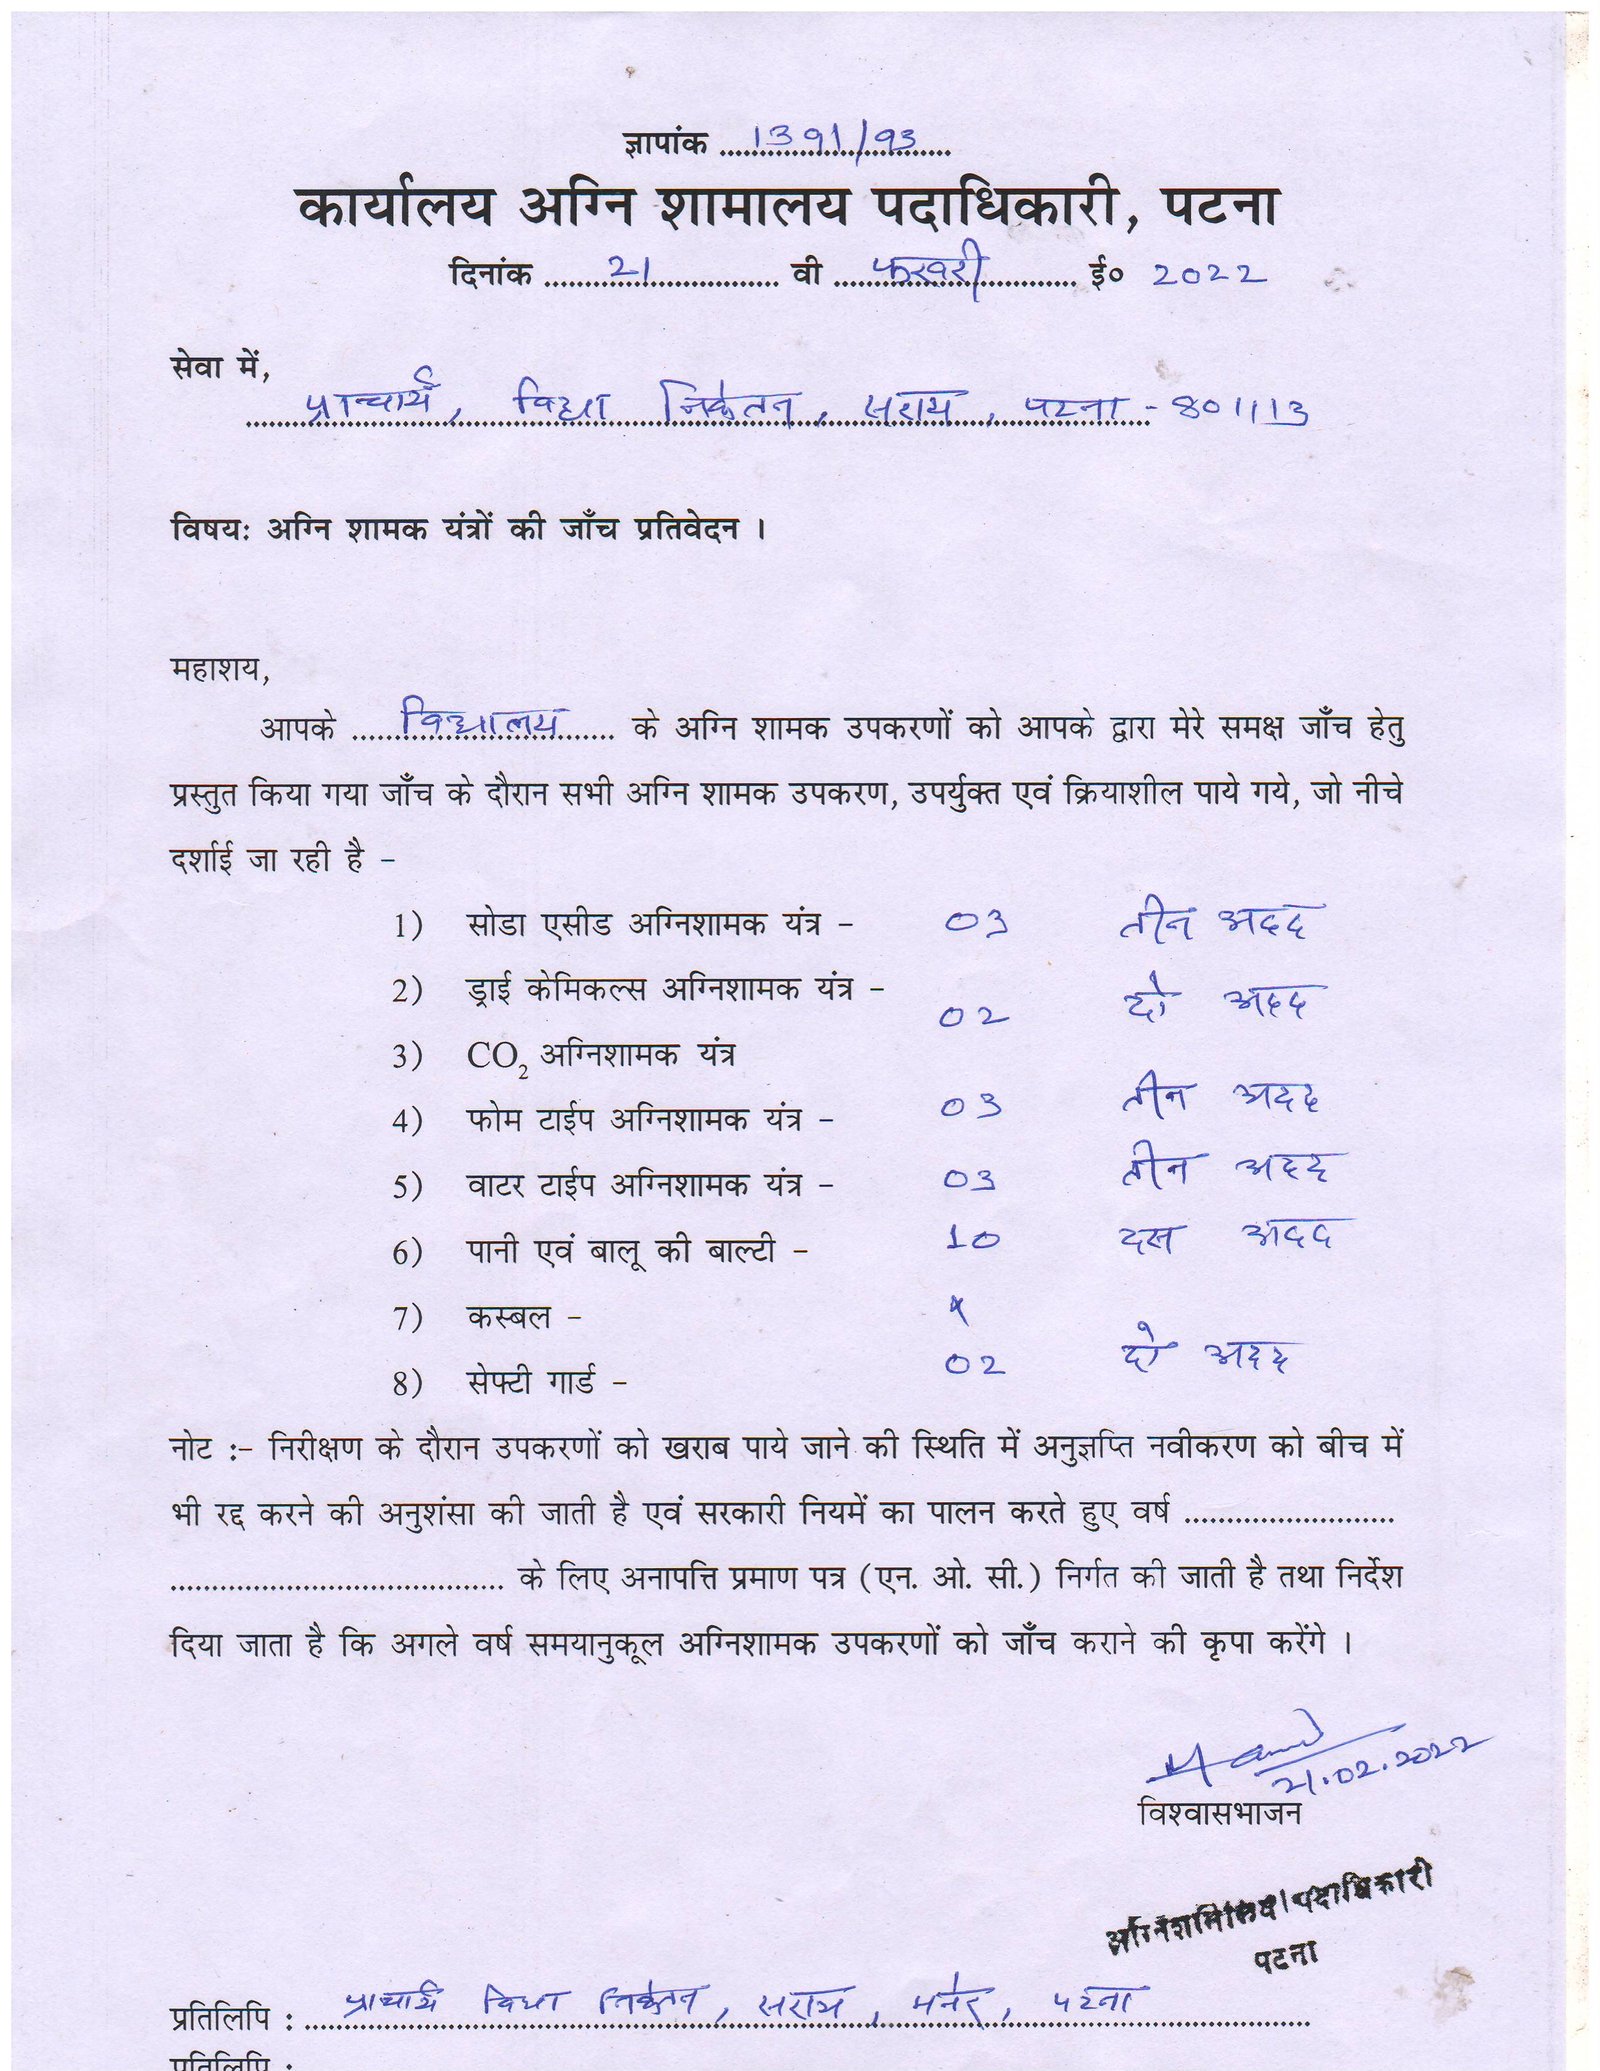 ज्ञापांक ....1391/93....
कार्यालय अग्नि शामालय पदाधिकारी, पटना
दिनांक ....21.... वी ....फरवरी.... ई० 2022
सेवा में,
प्राचार्य, विद्या निकेतन, सराय, पटना - 801113
विषयः अग्नि शामक यंत्रों की जाँच प्रतिवेदन ।
महाशय,
आपके ....विद्यालय.... के अग्नि शामक उपकरणों को आपके द्वारा मेरे समक्ष जाँच हेतु
प्रस्तुत किया गया जाँच के दौरान सभी अग्नि शामक उपकरण, उपर्युक्त एवं क्रियाशील पाये गये, जो नीचे
दर्शाई जा रही है –
1) सोडा एसीड अग्निशामक यंत्र – 03 तीन अदद
2) ड्राई केमिकल्स अग्निशामक यंत्र – 02 दो अदद
3) CO₂ अग्निशामक यंत्र
4) फोम टाईप अग्निशामक यंत्र – 03 तीन अदद
5) वाटर टाईप अग्निशामक यंत्र – 03 तीन अदद
6) पानी एवं बालू की बाल्टी – 10 दस अदद
7) कस्बल – x
8) सेफ्टी गार्ड – 02 दो अदद
नोट :– निरीक्षण के दौरान उपकरणों को खराब पाये जाने की स्थिति में अनुज्ञप्ति नवीकरण को बीच में
भी रद्द करने की अनुशंसा की जाती है एवं सरकारी नियमें का पालन करते हुए वर्ष ........................
........................ के लिए अनापत्ति प्रमाण पत्र (एन. ओ. सी.) निर्गत की जाती है तथा निर्देश
दिया जाता है कि अगले वर्ष समयानुकूल अग्निशामक उपकरणों को जाँच कराने की कृपा करेंगे ।
21.02.2022
विश्वासभाजन
पदाधिकारी
पटना
प्रतिलिपि : प्राचार्य विद्या निकेतन, सराय, मनेर, पटना
प्रतिलिपि :